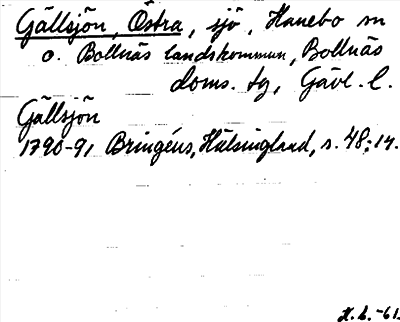 Gällsjön, Östra, sjö, Hanebo sn
o. Bollnäs landskommun, Bollnäs
doms. tg, Gävl. l.
Gällsjön
1790-91 Bringéus, Hälsingland, s. 48:14.
H. L. -61.